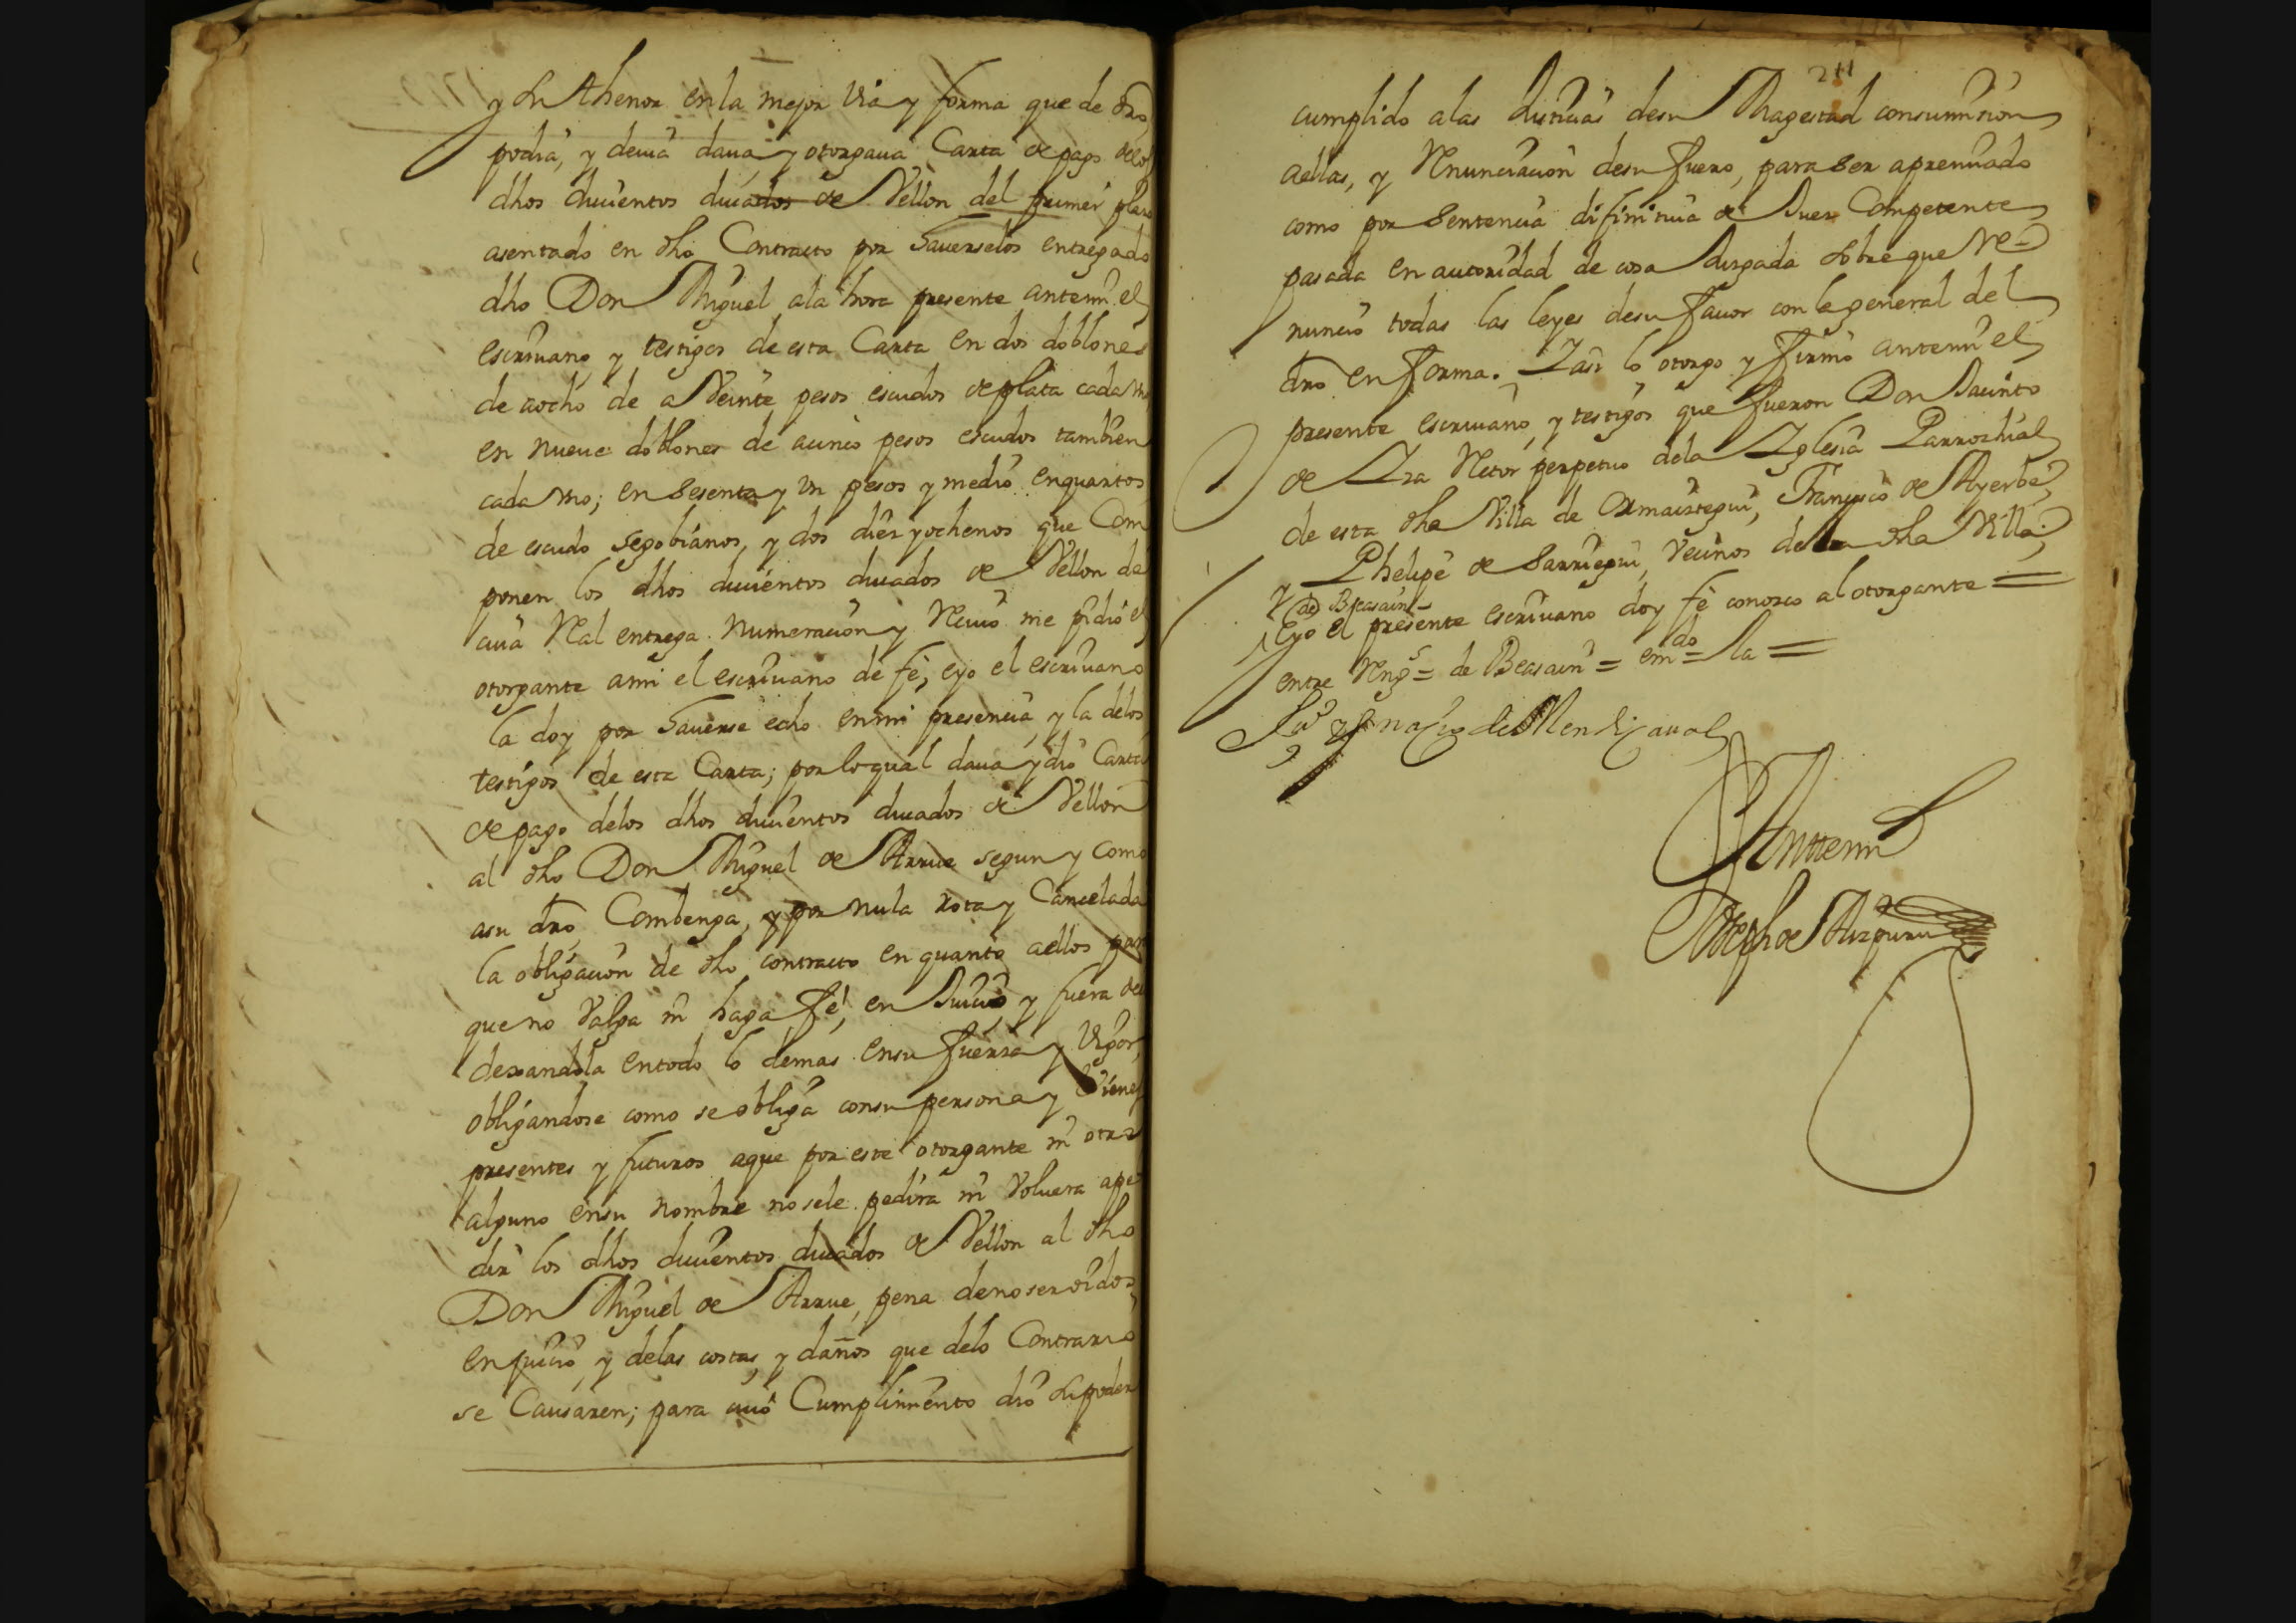 y su thenor en la mejor via y forma que de dro
podia, y deuia daua, y otorgaua Carta de pago de los
dhos ducientos ducados de Vellon del primer plazo
asentado en dho Contracto por hauerselos entregado
dho Don Miguel ala hora presente antemi el
escriuano, y testigos de esta Carta en dos doblones
de aocho de a Veinte pesos escudos de plata cada vno
en nueue doblones de acinco pesos escudos tambien
cada vno; en sesenta y vn pesos y medio enquartos
de escudo segobianos, y dos diez yochenos que Com
ponen los dhos ducientos ducados de Vellon de
cuia Real entrega. Numeracion y Reciuo me pidio el
otorgante ami el escriuano de fe, eyo el escriuano
la doy por hauerse echo enmi presencia, y la delos
testigos de esta Carta; por lo qual daua y dio Carta
de pago delos dhos ducientos ducados de Vellon
al dho Don Miguel de Arrue segun y como
asu dro Combenga, y por nula rota y Cancelada
la obligacion de dho contracto en quanto aellos para
que no Valga ni haga fe, en Juicio, y fuera de el
dexandola entodo lo demas ensu fuerza y vigor,
obligandose como se obliga consu persona y Vienes
presentes y futuros aque por este otorgante ni otro
alguno ensu nombre nosele pedira ni Voluera ape
dir los dhos ducientos ducados de Vellon al dho
Don Miguel de Arrue, pena denoser oidos
en juicio, y delas costas, y daños que delo Contrario
se Causaren; para cuio Cumplimiento dio su poder
211
cumplido alas Justicias desu Magestad consumision
aellas, y Renunciacion desu fuero, para ser apremiado
como por sentencia difinitiua de Juez Competente
pasada en autoridad de cosa Juzgada sobre que Re-
nuncio todas las leyes desu fauor con la general del
dro en forma. Y asi lo otorgo y firmo antemi el
presente escriuano, y testigos que fueron Don Jacinto
de Yza Retor perpetuo dela Yglesia Parrochial
de esta dha Villa de Ormaiztegui, Francisco de Ayerbe,
y Phelipe de Sarriegui, Vecinos dela dha Villa,
y de Beasain
Eyo el presente escriuano doy fe conozco al otorgante =
entre Rengs = de Beasain = emdo = la =
Ignazio de Mendizaual
Anttemi
Joseph de Aizpuru